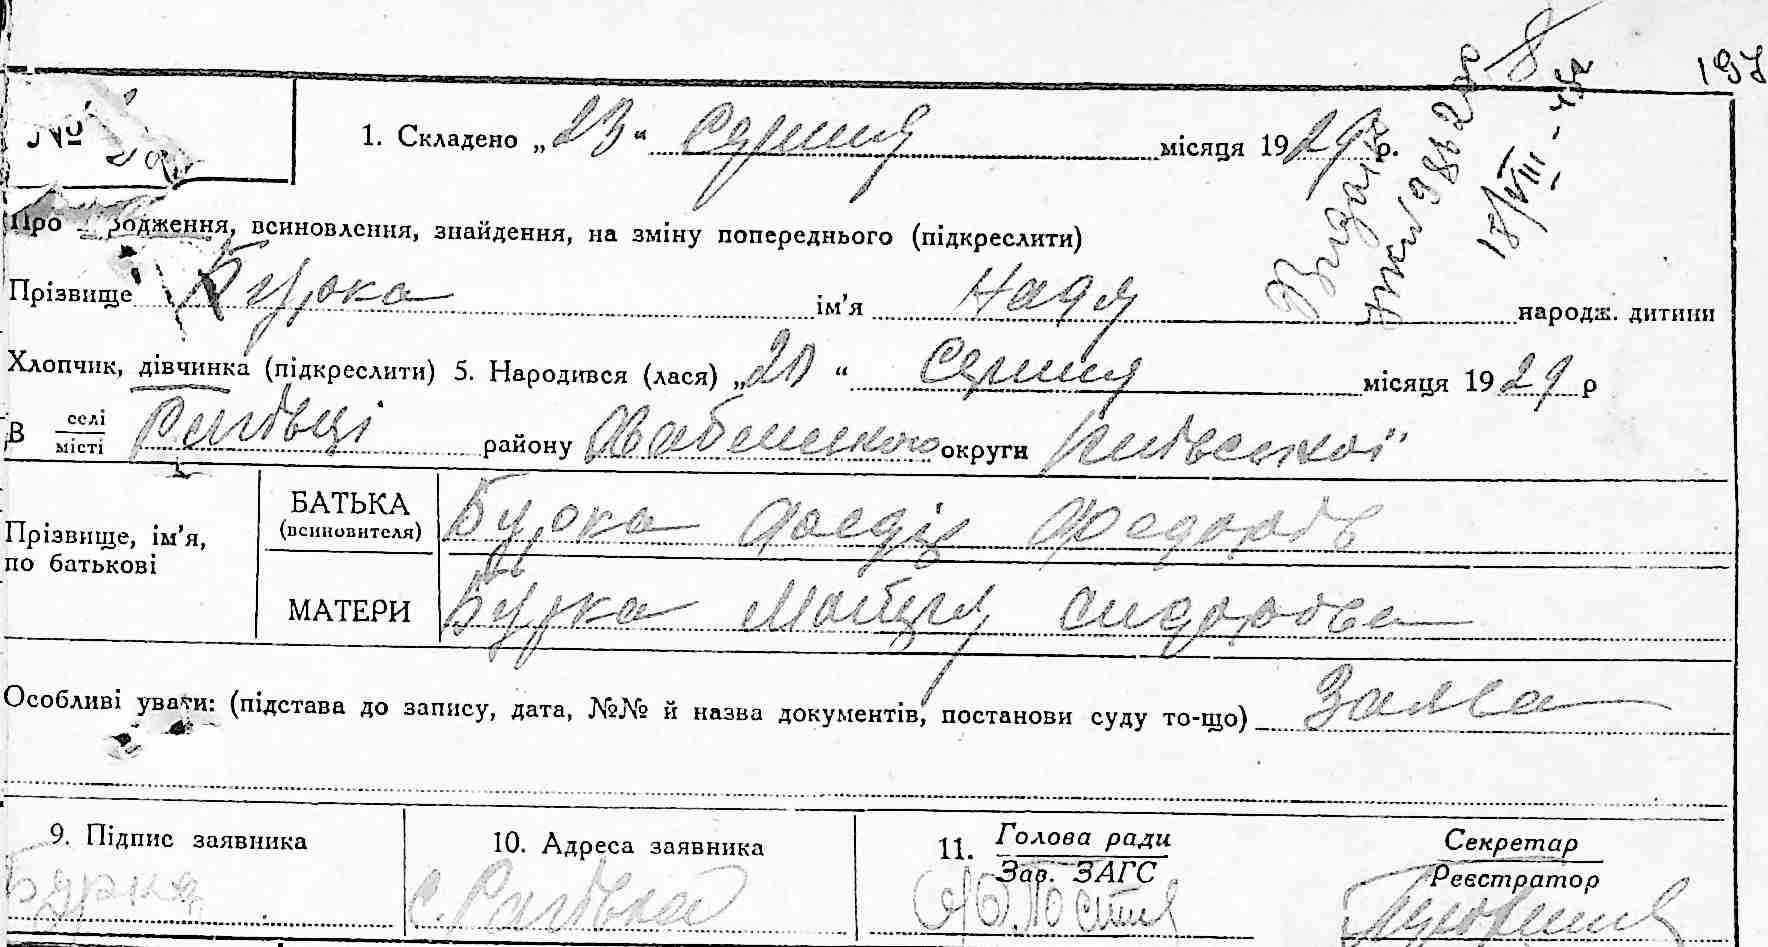 197
№
1. Складено „23“ Серпня місяця 1929 р.
18/VIII-
Про родження, всиновлення, знайдення, на зміну попереднього (підкреслити)
Прізвище Бурка ім’я Надя народж. дитини
Хлопчик, дівчинка (підкреслити) 5. Народився (лася) „20“ Серпня місяця 1929 р
В селі
місті
району Хабенського округи Київської
Прізвище, ім’я,
по батькові
БАТЬКА
(всиновителя)
Бурка Федорів
МАТЕРИ
Бурка Сидорова
Особливі уваги: (підстава до запису, дата, №№ й назва документів, постанови суду то-що) Заява
9. Підпис заявника
Бурка
10. Адреса заявника
с.
11. Голова ради
Зав. ЗАГС
Секретар
Реєстратор